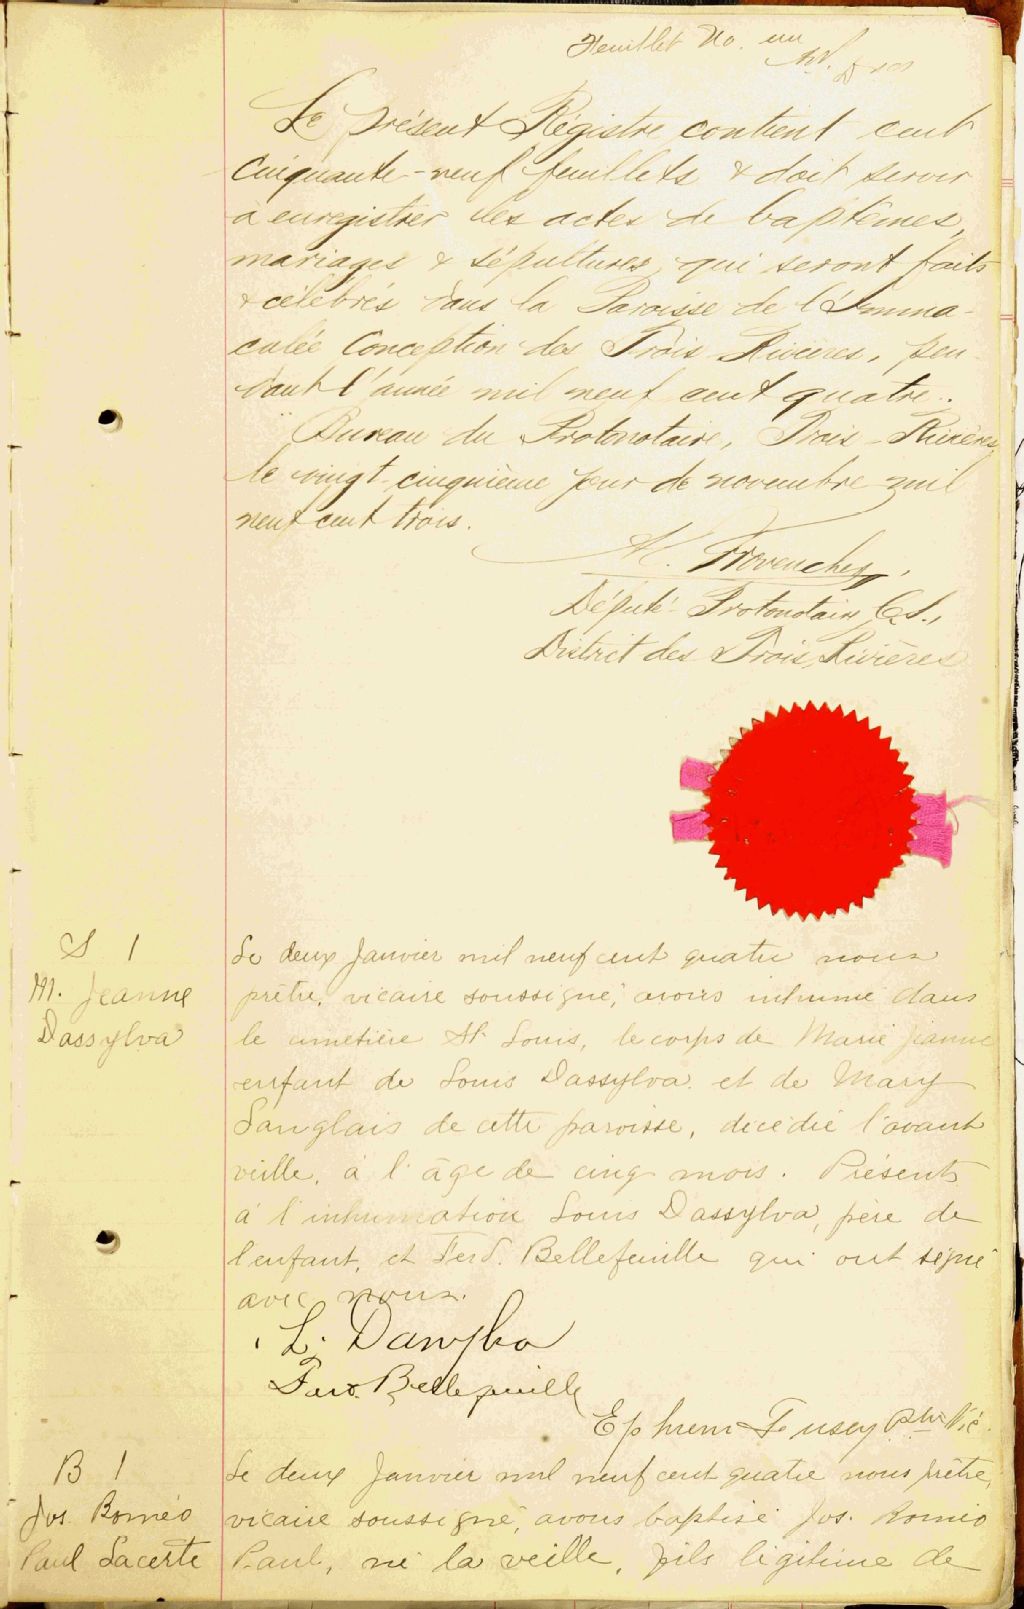 Feuillet No. un
Le présent Régistre contient cent
cinquante-neuf feuillets & doit servir
à enregistrer les actes de baptêmes,
mariages & sépultures, qui seront faits
& célébrés dans la Paroisse de l'Imma-
culée Conception des Trois Rivières, pen-
dant l'année mil neuf cent quatre.
Bureau du Protonotaire, Trois-Rivières
le vingt-cinquième jour de novembre mil
neuf cent trois.
Provencher,
Député-Protonotaire C.S.,
District des Trois Rivières
S 1
M. Jeanne
Dassylva
Le deux Janvier mil neuf cent quatre nous
prêtre, vicaire soussigné, avons inhumé dans
le cimetière St Louis, le corps de Marie Jeanne
enfant de Louis Dassylva et de Mary
Langlais de cette paroisse, décédée l'avant
veille, à l'âge de cinq mois. Présents
à l'inhumation Louis Dassylva, père de
l'enfant, et Ferd. Bellefeuille qui ont signé
avec nous.
L. Dassylva
Ferd. Bellefeuille
Ephrem Fusey Ptre Vic.
B 1
Jos. Roméo
Paul Lacerte
Le deux Janvier mil neuf cent quatre nous prêtre,
vicaire soussigné, avons baptisé Jos. Roméo
Paul, né la veille, fils légitime de